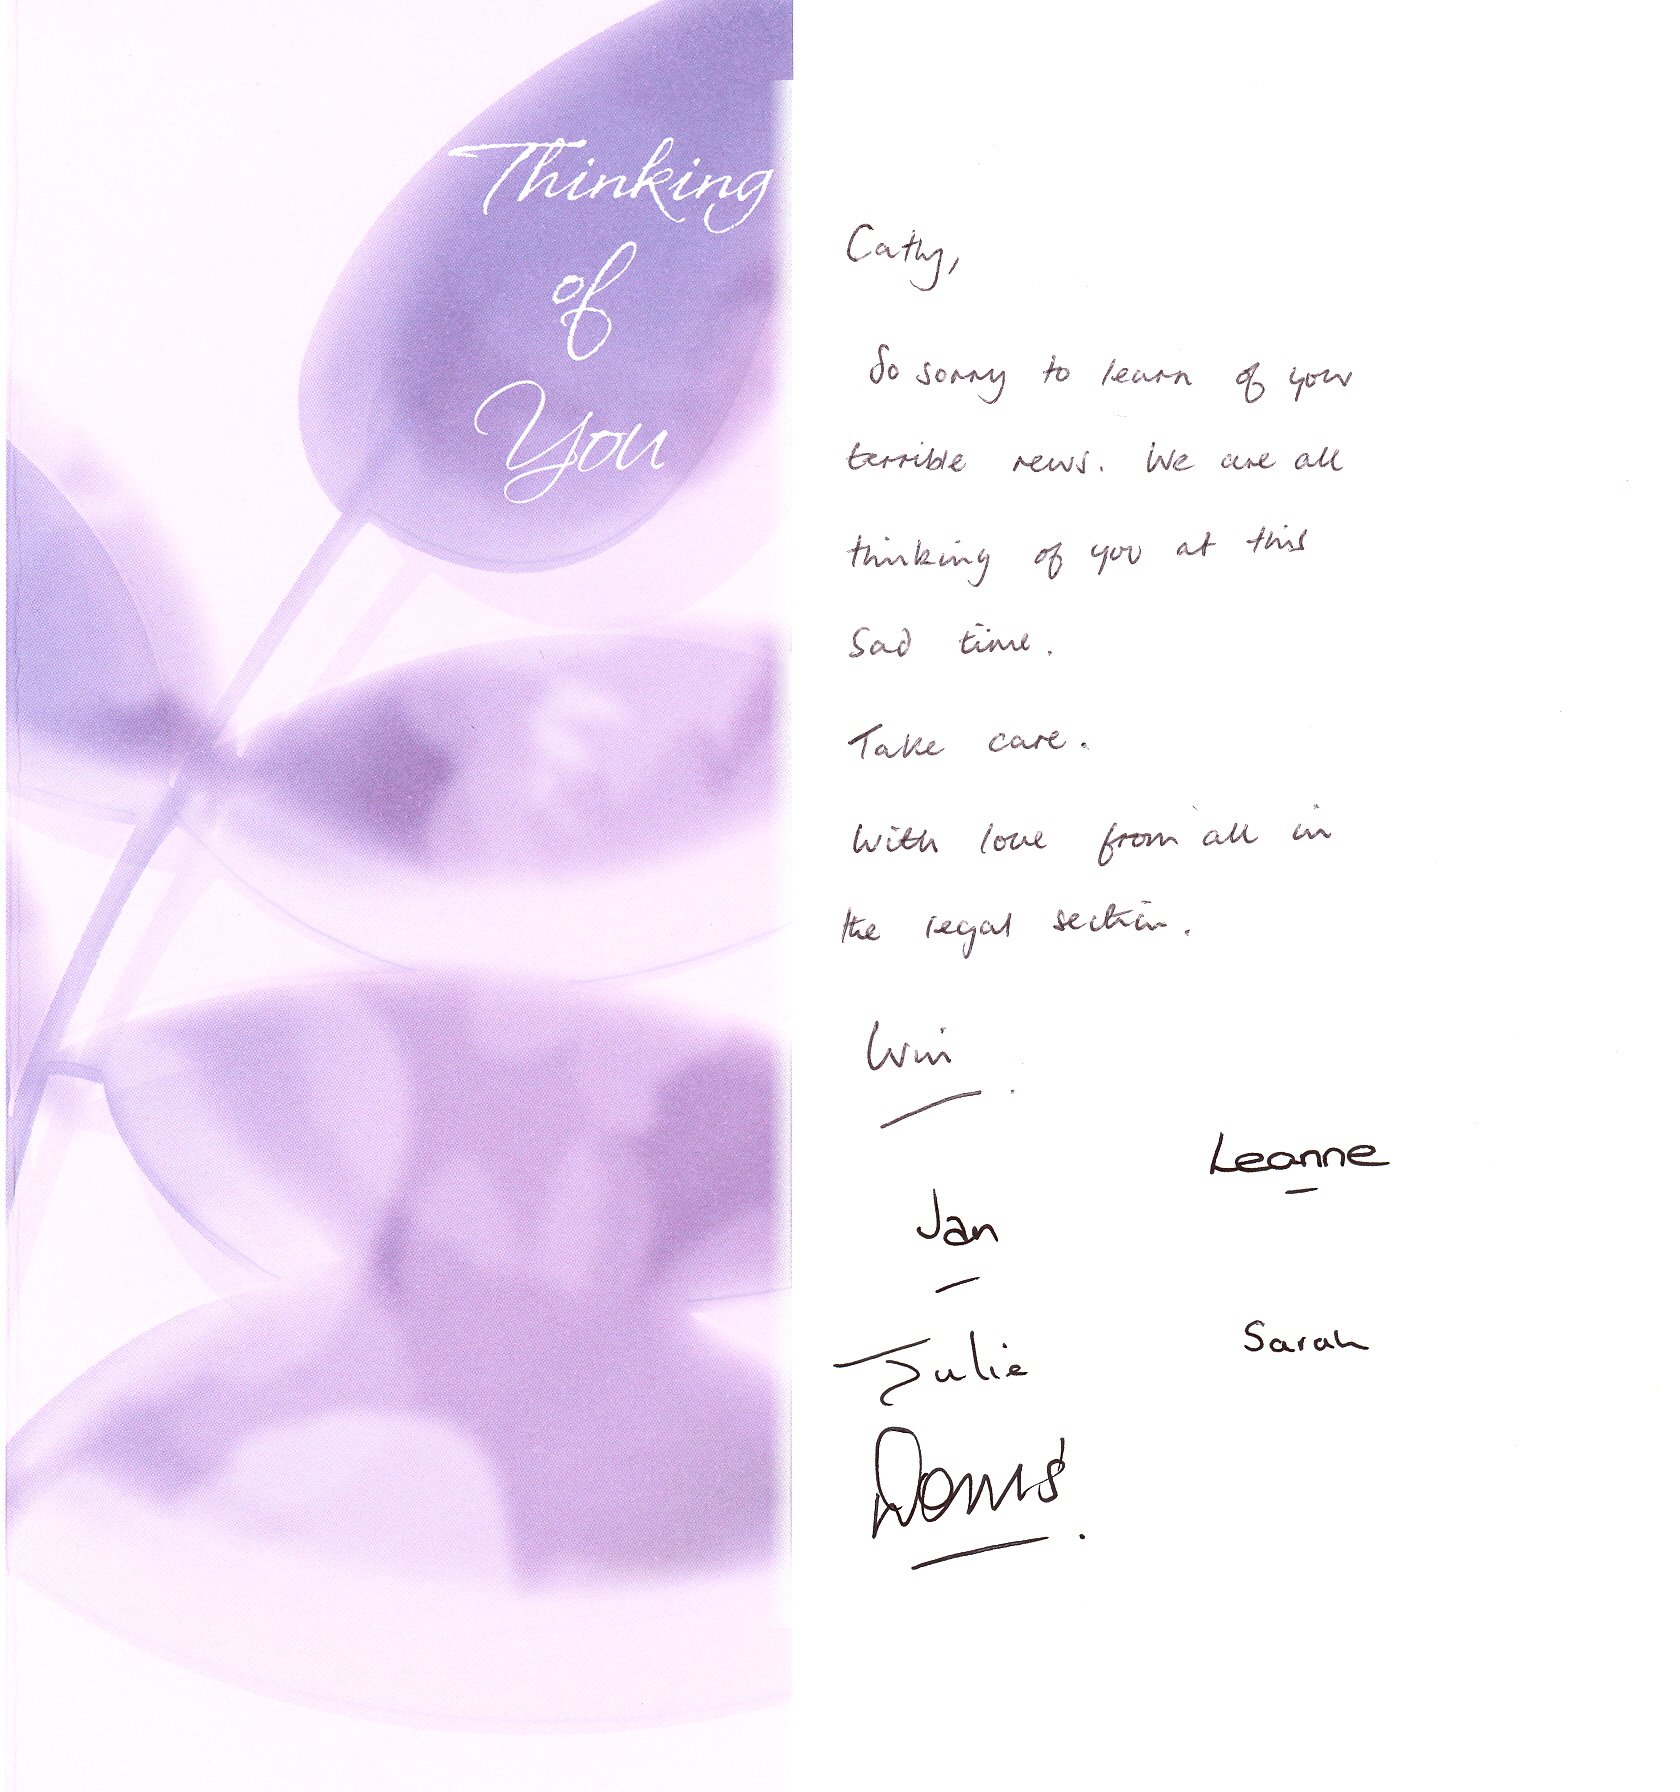 Thinking
of
You
Cathy,
So sorry to learn of your
terrible news. We are all
thinking of you at this
sad time.
Take care.
With love from all in
the legal section.
Win
Leanne
Jan
Sarah
Julie